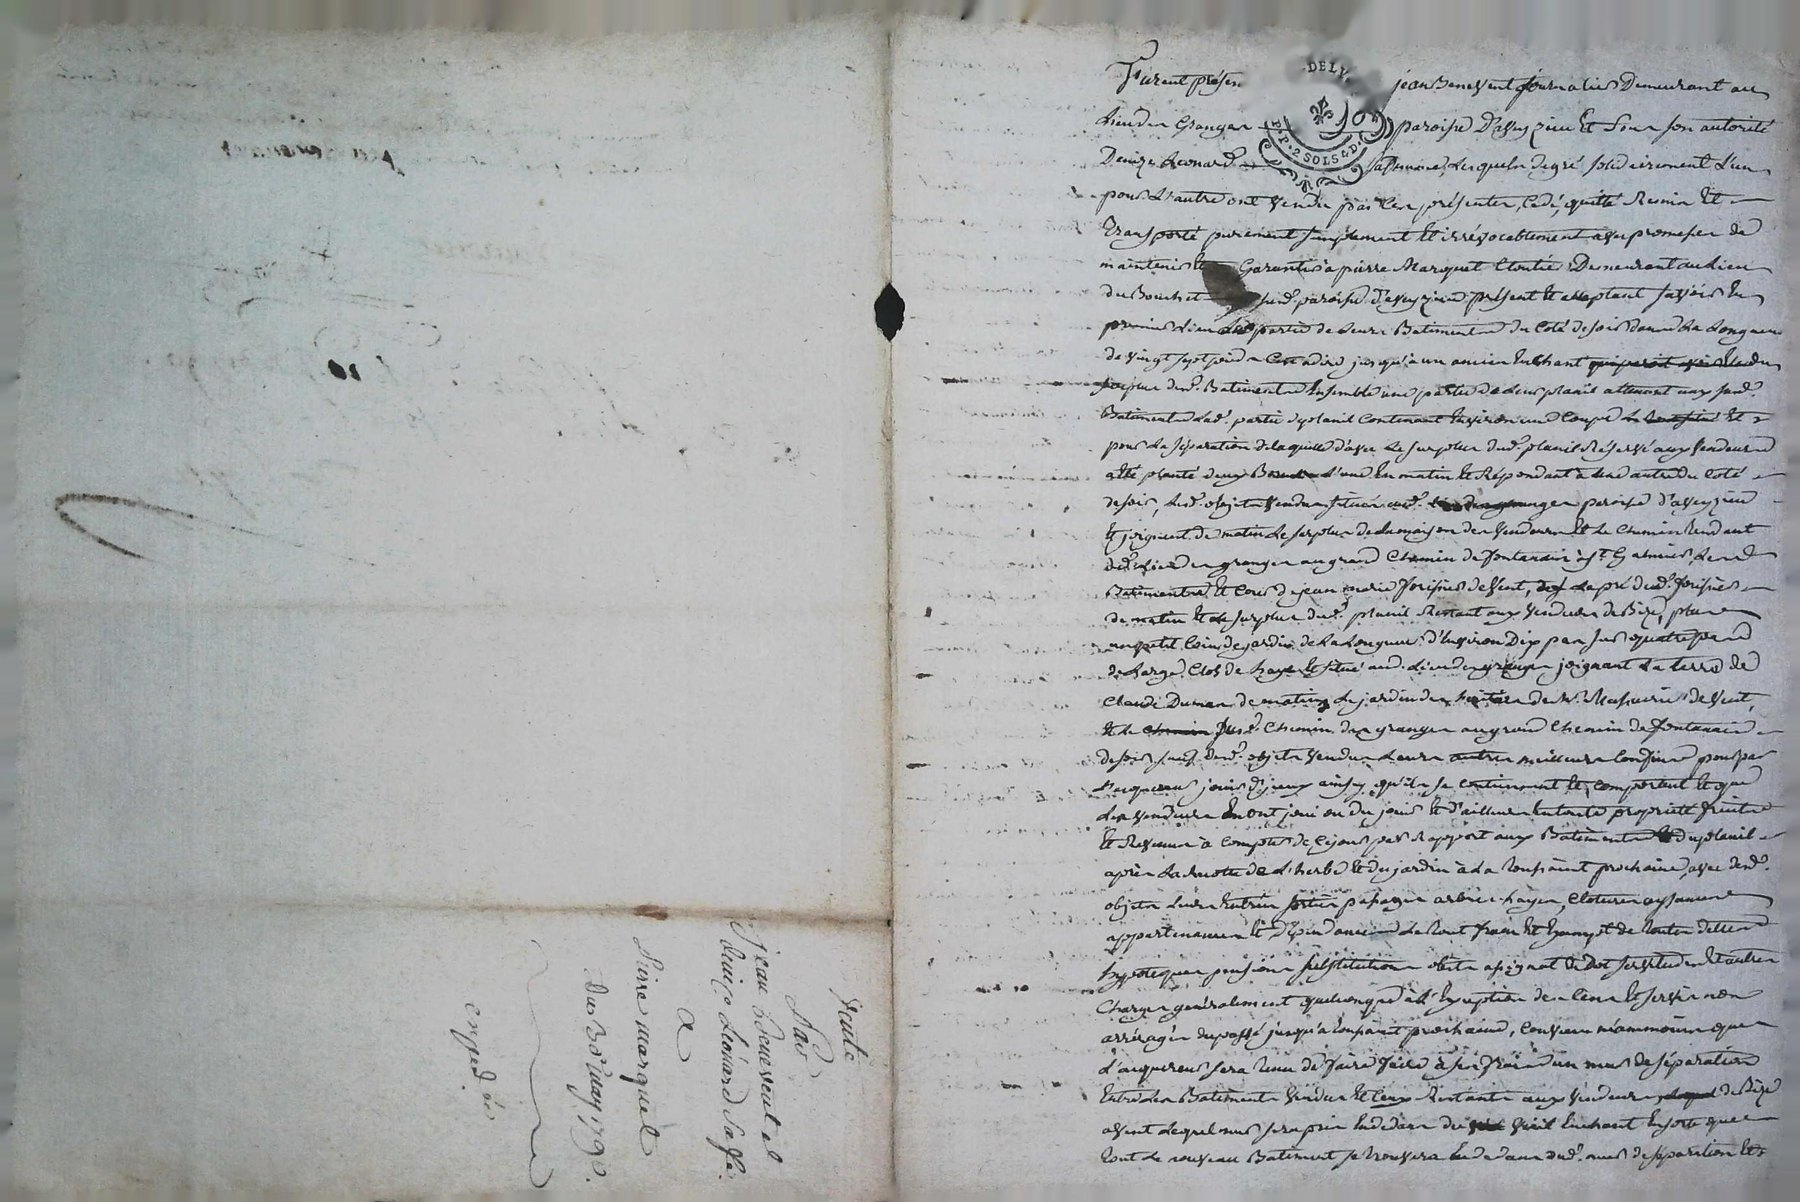 Vente
Par
jean Benevent et
Denize Léonard sa fe.
a
Pierre marquet
du 30. may 1790.
exped. ée
DE LY
P. 2 SOLS 4 D.
Furent présen jean Benevent journalier Demeurant au
Lieu des Granges paroisse D'aveyzieu Et Sous son autorité
Denize Leonard sa femme, Lesquels de gré solidairement L'un
pour L'autre ont vendu par Ces présentes, Cédé, quitté Remis Et
Transporté purement simplement Et irrévocablement avec promesse de
maintenir Et Garantir à pierre Marquet Cloutier Demeurant au Lieu
du Bouchet susd. paroisse d'aveyzieu présent Et acceptant savoir En
premier Lieu partie de Leurs Batiments du Coté de soir dans La Longueur
de vingt sept pieds C'est adire jusqu'à un ancien Enchant
surplus desd. Batiments Ensemble une partie de Leur planil attenant aux susd.
Batiments Lad. partie de planil Contenant Environ une Coupe Et
pour La séparation de laquelle d'avec Le surplus dud. planil Réservé aux vendeurs
a Eté planté deux Bornes L'une En matin Et Répondant à une autre du Coté
de soir, Lesd. objets vendus situés aud. paroisse d'aveyzieu
Et joignent de matin Le surplus de La maison des vendeurs Et Le Chemin tendant
dud. Lieu des granges au grand Chemin de fontanais à St. Galmier, Les
Batiments Et Cour de jean marie de vent, Le pré dud.
de matin Et Le surplus dud. planil Restant aux vendeurs de Bize, plus
un petit Coin de jardin de La Longueur d'Environ Dix pas sur quatre pas
de Large, Clos de haye Et situé aud. Lieu des granges joignant La terre de
Claude Dumas de matin, Le jardin des héritiers de Sr. de vent,
Et Le susd. Chemin des granges au grand Chemin de fontanais
de soir, sauf desd. objets vendus Leurs autres meilleurs Confins pour par
L'acquereur jouir d'iceux ainsy qu'ils se Contiennent Et Comportent Et que
Les vendeurs En ont joui ou du jouir Et d'ailleurs En toute propriété fruits
Et Revenus a Compter de Ce jour par Rapport aux Batiments Et du planil
après La Récolte de L'herbe Et du jardin à La Toussaint prochaine, avec desd.
objets Leurs Entrées sorties passages arbres hayes, Clotures aysances
appartenances Et Dépendances Le tout franc Et Exempt de toutes dettes
hypoteques pensions substitutions obits assignat de Dot servitudes Et autres
Charges généralement quelconques à L'Exception des Cens Et servis non
arréragés du passé jusqu'à toussaint prochaine, Convenu néammoins que
L'acquereur sera tenu de faire faire à ses frais un mur de séparation
Entre Les Batiments vendus Et Ceux Restants aux vendeurs de Bize
avent Lequel mur sera pris En dedans du vieil Enchant En sorte que
tout Le nouveau Batiment se trouvera En dedans dud. mur de séparation Et